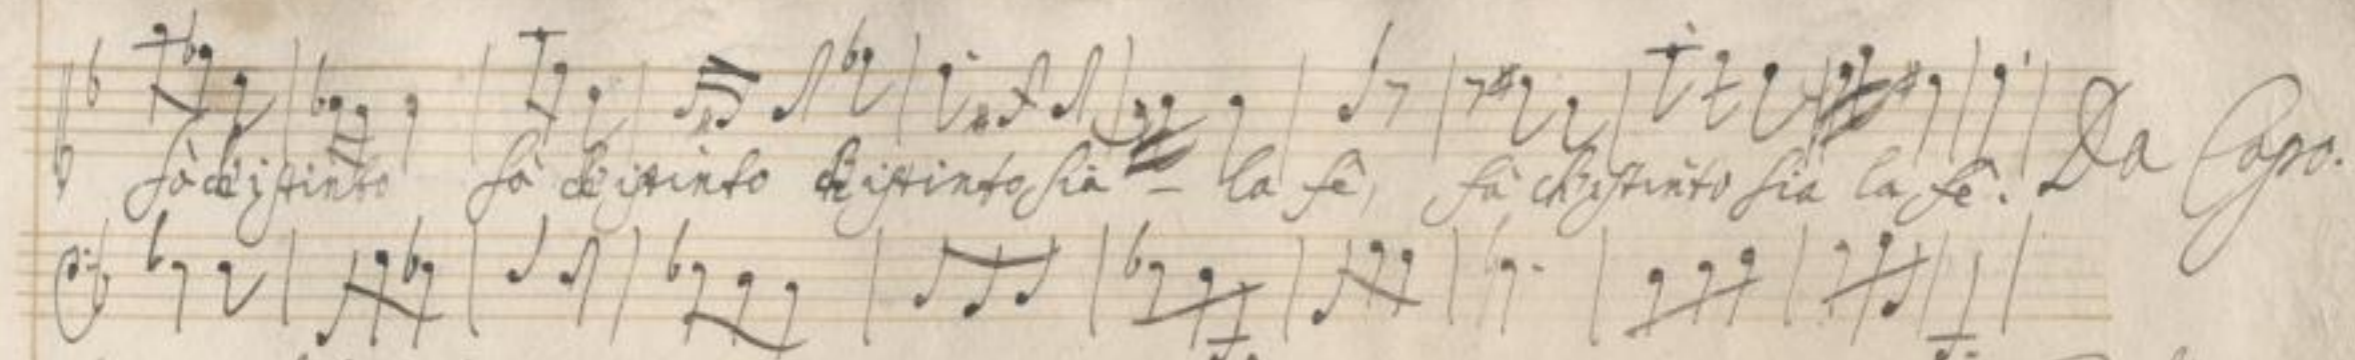 fà ch'istinto fà ch'istinto ch'istinto sia – la fè, fà ch'istinto sia la fè. Da Capo.